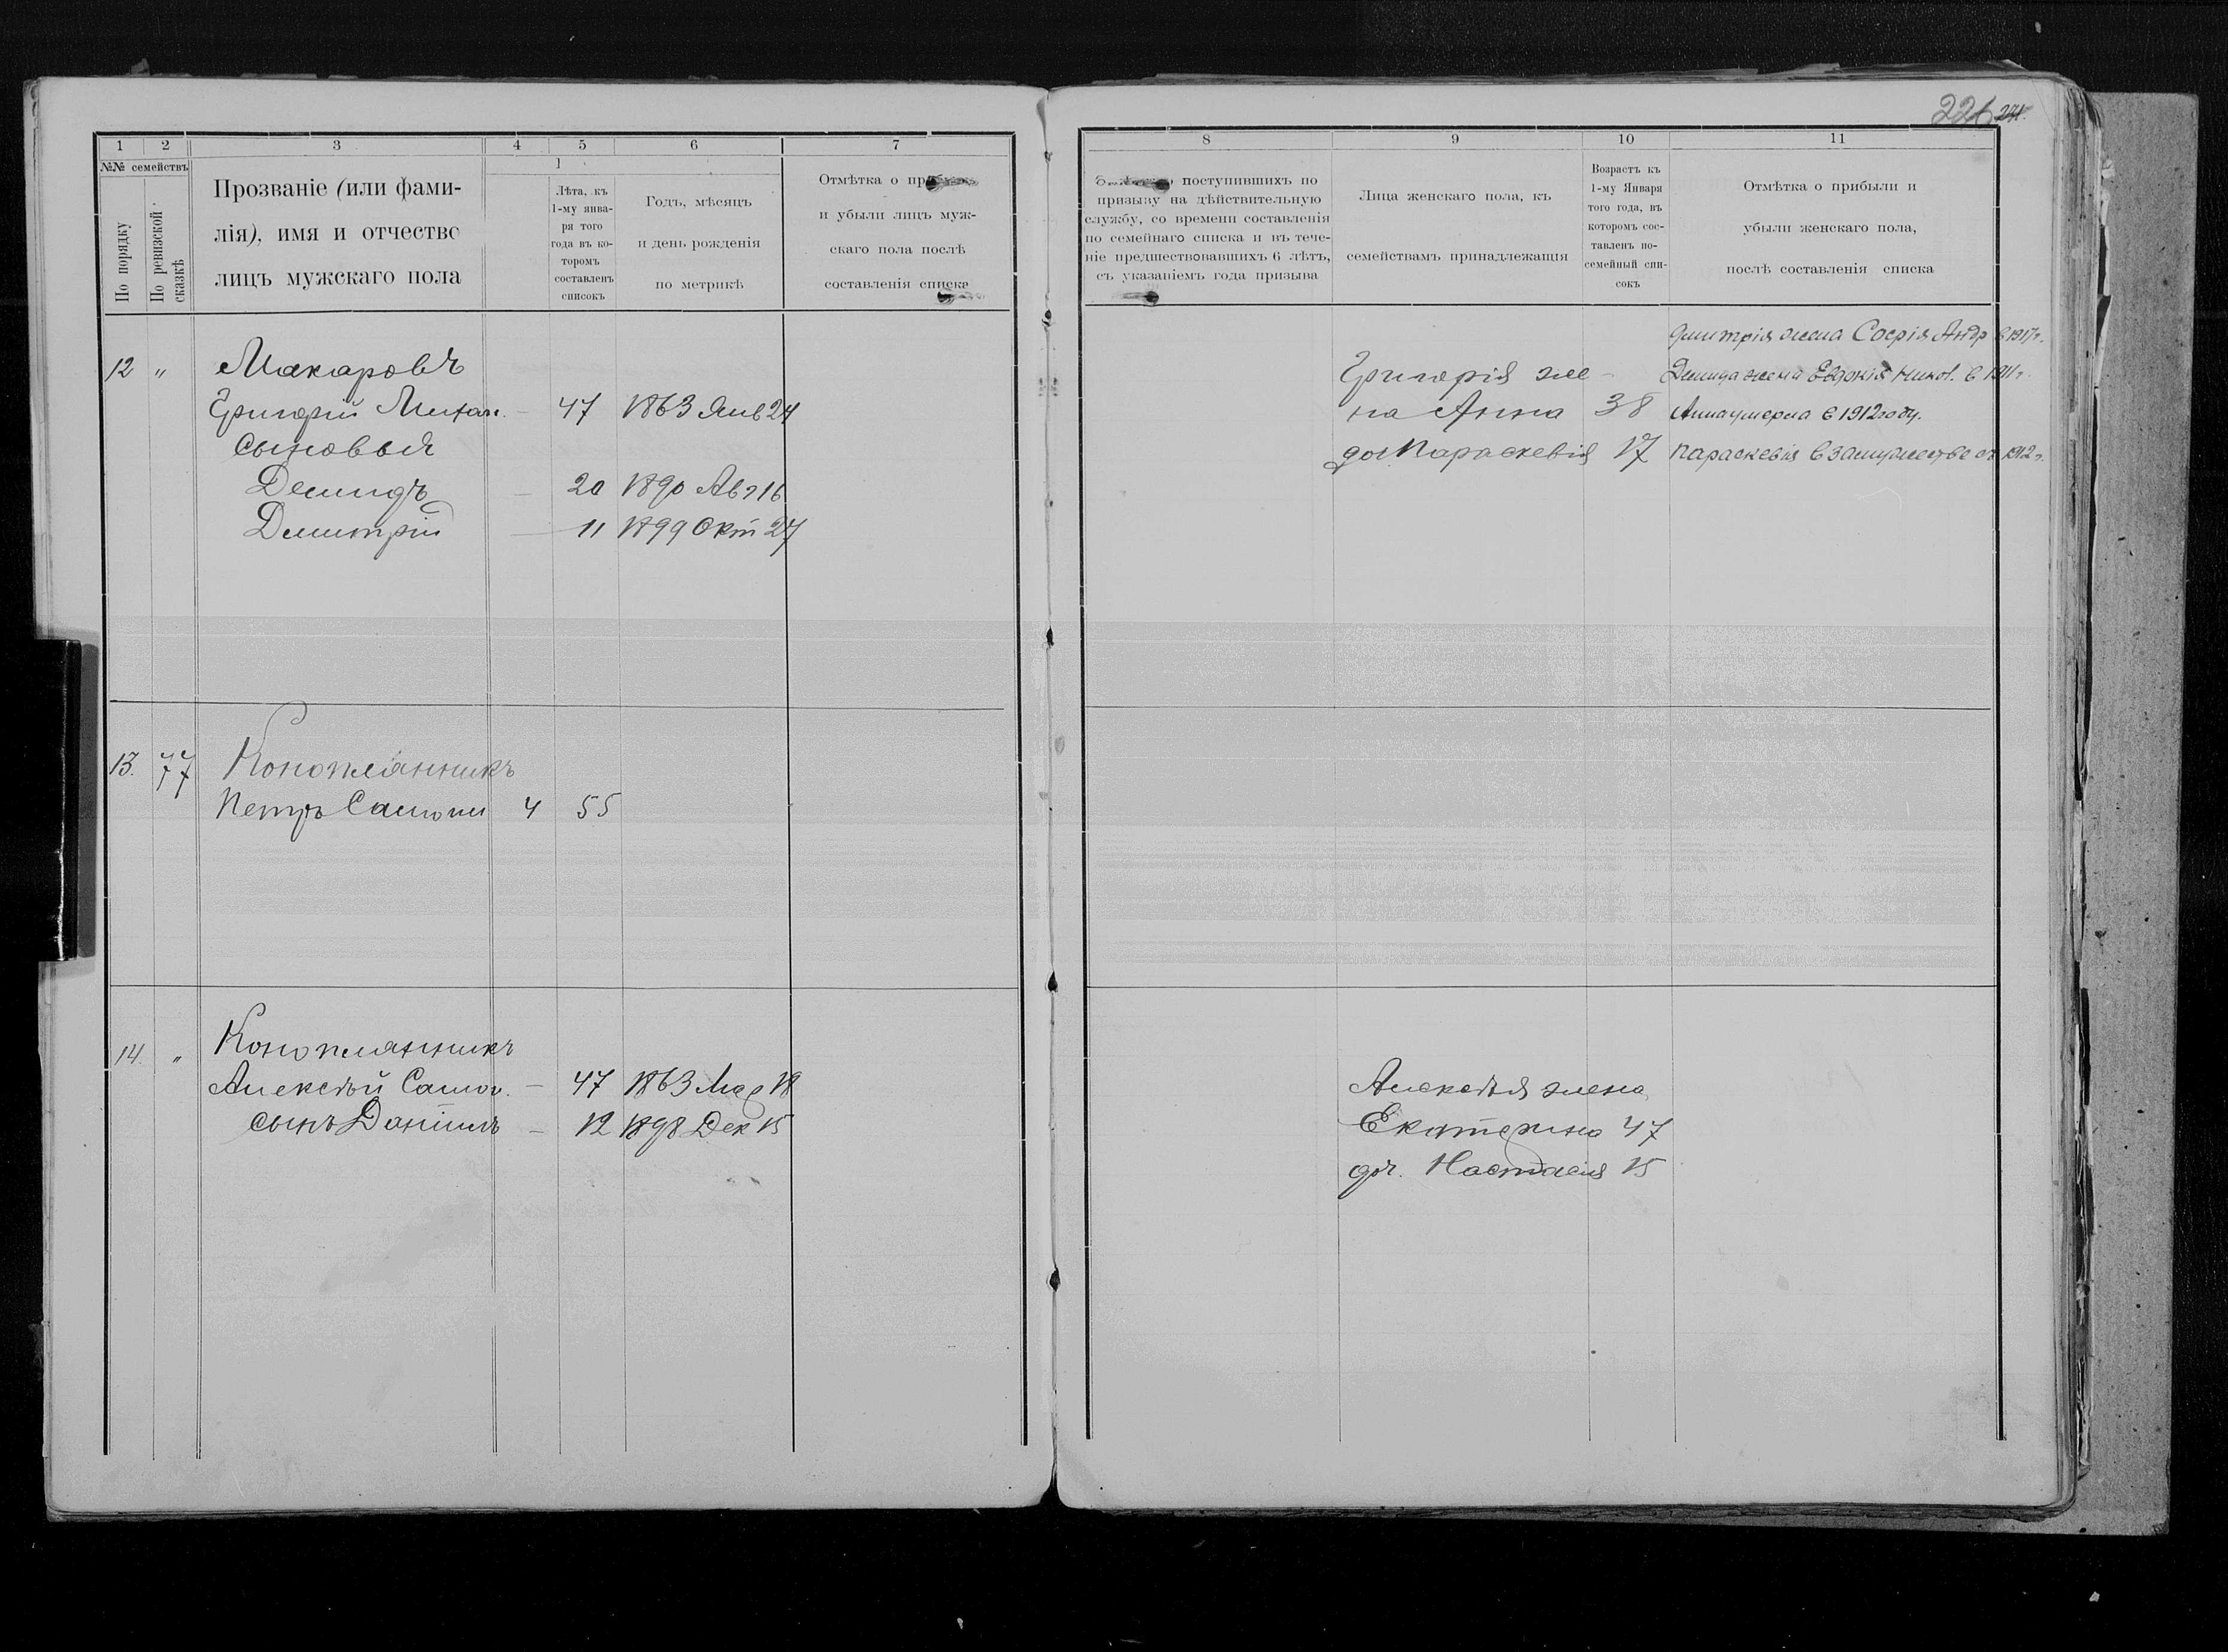 226
1 2 3 4 5 6 7
№№ семействъ
По порядку
По ревизской сказкѣ
Прозваніе (или фами-
лія), имя и отчество
лицъ мужскаго пола
1
Лѣта, къ
1-му янва-
ря того
года въ ко-
торомъ
составленъ
списокъ
Годъ, мѣсяцъ
и день рожденія
по метрикѣ
Отмѣтка о
и убыли лицъ муж-
скаго пола послѣ
составленія списка
12 " Макаровъ
Григорій Михаи. — 47 1863 Янв 24
Сыновья
Демидъ — 20 1890 Авг 16
Димитрій — 11 1899 Окт 27
13. 77 Конопляникъ
Петръ Самои 4 55
14. " Конопляникъ
Алексѣй Само. — 47 1863 Мар 18
сынъ Даніилъ — 12 1898 Дек 15
8 9 10 11
поступившихъ по
призыву на дѣйствительную
службу, со времени составленія
по семейнаго списка и въ тече-
ніе предшествовавшихъ 6 лѣтъ,
съ указаніемъ года призыва
Лица женскаго пола, къ
семействамъ принадлежащія
Возрастъ къ
1-му Января
того года, въ
которомъ сос-
тавленъ по-
семейный спи-
сокъ
Отмѣтка о прибыли и
убыли женскаго пола,
послѣ составленія списка
Дмитрія жена Софія Андр в 1917г.
Григорія же- Демида жена Евдокія Никол. в 1911г.
на Анна 38 Анна умерла в 1912 году.
доч Параскевія 17 Параскевія в замужестве съ 1912 г.
Алексѣя жена
Екатерина 47
доч. Настасія 15